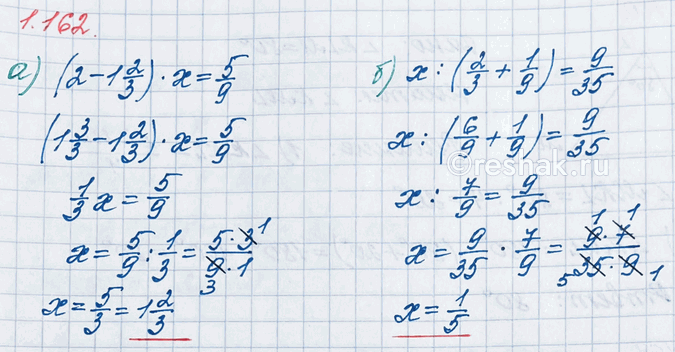 1.162.
а) (2 − 1 2/3) · x = 5/9
(1 3/3 − 1 2/3) · x = 5/9
1/3 x = 5/9
x = 5/9 : 1/3 = 5 · 3 1 / 9 3 · 1
x = 5/3 = 1 2/3
б) x : (2/3 + 1/9) = 9/35
x : (6/9 + 1/9) = 9/35
x : 7/9 = 9/35
x = 9/35 · 7/9 = 1 9 · 7 1 / 5 35 · 9 1
x = 1/5
reshak.ru